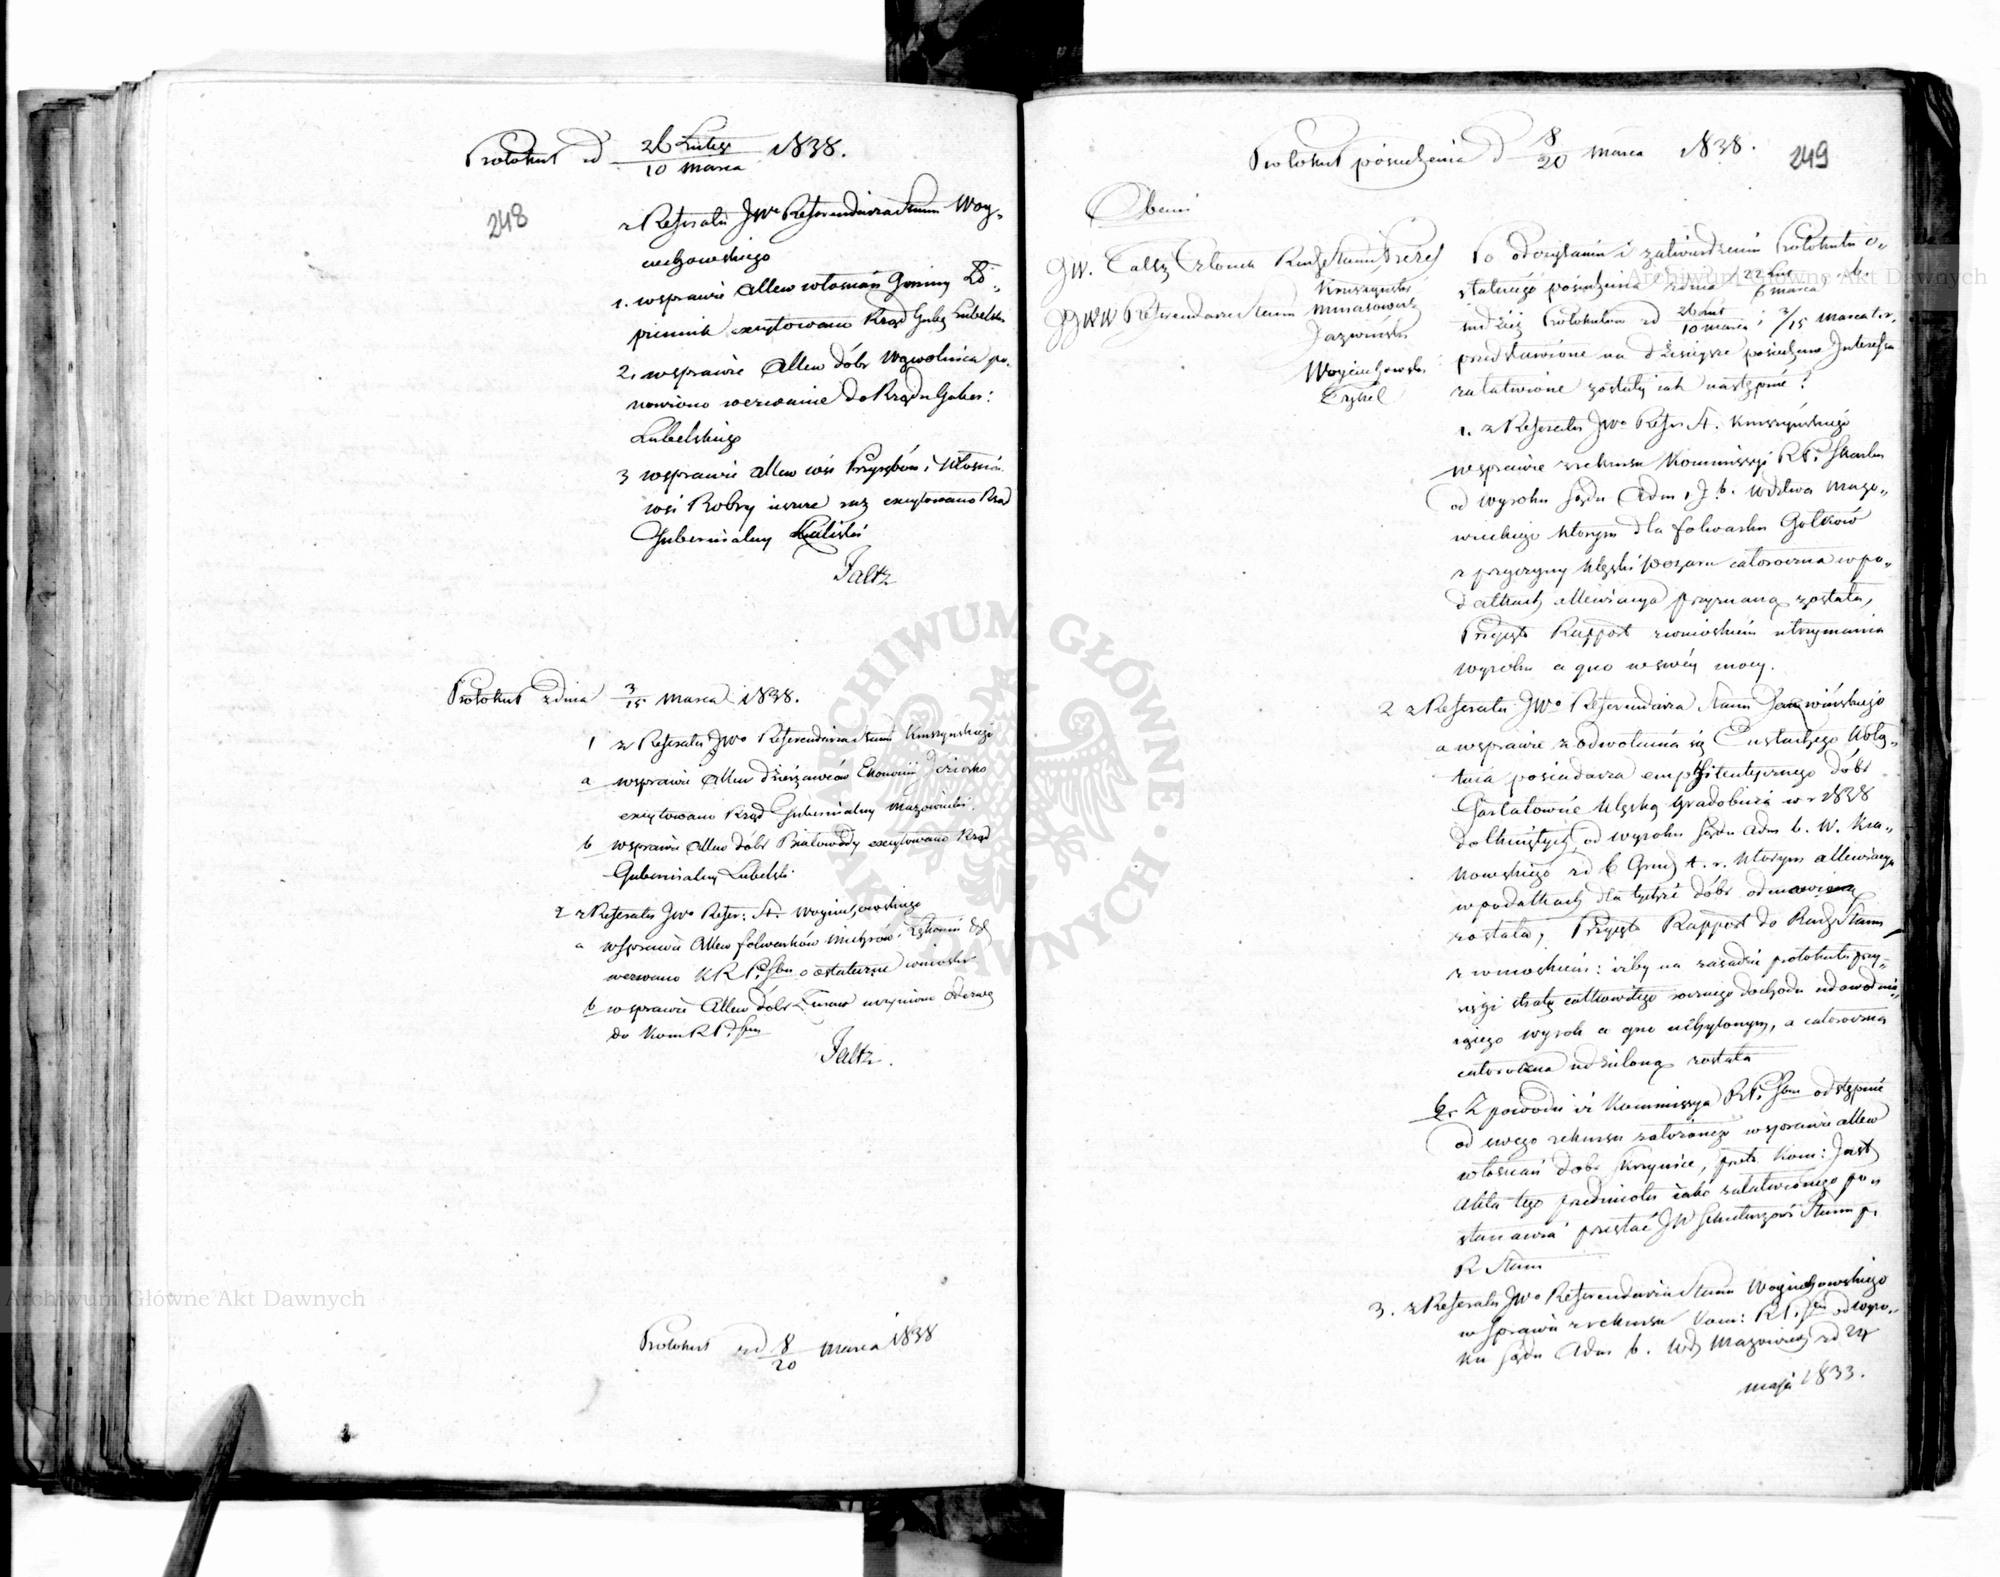 Protokuł zd 26 Lutego / 10 marca 1838.
248
z Referatu JWo Referendarza Stanu Woy-
ciechowskiego
1. w sprawie allew włościan Gminy
exytowano Rząd Guber Lubelski
2. w sprawie allew dóbr Wąwolnica po-
nowiono wezwanie do Rządu Guber:
Lubelskiego
3 w sprawie allew wsi Przysębów i Włościan
wsi Kobry ieszcze raz exytowano Rząd
Gubernialny Kaliski
Faltz
Protokuł z dnia 3/15 marca 1838.
1 z Referatu JWo Referendarza Stanu Kruszyńskiego
a w sprawie allew dzierżawców Ekonomii
exytowano Rząd Gubernialny Mazowiecki.
b w sprawie allew dóbr Białowody excytowano Rząd
Gubernialny Lubelski
2 z Referatu JWo Refer: St. Woyciechowskiego
a w sprawie allew folwarków
wezwano KRP i Sbu o ostateczne wnioski
b w sprawie allew dóbr uczyniono odezwę
do Kom RP i Sbu
Faltz.
Protokuł zd 8/20 marca 1838
Protokuł posiedzenia d 8/20 marca 1838.
249
Obecni
JW. Faltz Członek Rady Stanu Prezes
JJWW Referendarze Stanu Kruszyński
Minasowicz
Jaźwiński
Woyciechowski
Tyzhel
Po odczytaniu i zatwierdzeniu Protokułu o-
statniego posiedzenia z dnia 22 Lut / 6 marca
tudzież Protokułów zd 26 Lut / 10 marca i 3/15 marca t.r.
przedstawione na dzisieysze posiedzenie Interessa
załatwione zostały iak następuie:
1. z Referatu JWo Refer St. Kruszyńskiego
w sprawie z rekursu Kommissyi RP i Skarbu
od wyroku Sądu Adm: J. b. wództwa Mazo-
wieckiego którym dla folwarku Gołków
z przyczyny klęski pożaru całoroczna w po-
datkach allewiacya przyznaną została,
Przyięto Rapport z wnioskiem utrzymania
wyroku a quo w swéy mocy.
2 z Referatu JWo Referendarza Stanu Jaźwińskiego
a w sprawie z odwołania się Eustachego
posiadacza emphiteutycznego dóbr
klęską gradobicia w r 1838
dotkniętych od wyroku Sądu Adm b. W. Kra-
kowskiego zd 6 Grud t. r. którym allewiacya
w podatkach dla tychże dóbr odmówioną
została, Przyięto Rapport do Rady Stanu
z wnioskiem: iżby na zasadzie protokułu przy-
sięgi stratę całkowitego rocznego dochodu udowodnia-
iącego wyrok a quo uchylonym, a całoroczna
całoroczna udzieloną została
b. Z powodu iż Kommissya RP i Sbu odstępuie
od swego rekursu założonego w sprawie allew
włościan dóbr Krzynice, przeto Kom: Inst
Akta tego przedmiotu iako załatwionego po-
stanawia przesłać JW Sekretarzowi Stanu p.
R Stanu
3. z Referatu JWo Referendarza Stanu Woyciechowskiego
w sprawie z rekursu Kom: RP i Sbu od wyro-
ku Sądu Adm b. Wdz Mazowieckiego zd 24
maja 1833.
Archiwum Główne Akt Dawnych
Archiwum Główne Akt Dawnych
ARCHIWUM GŁÓWNE AKT DAWNYCH